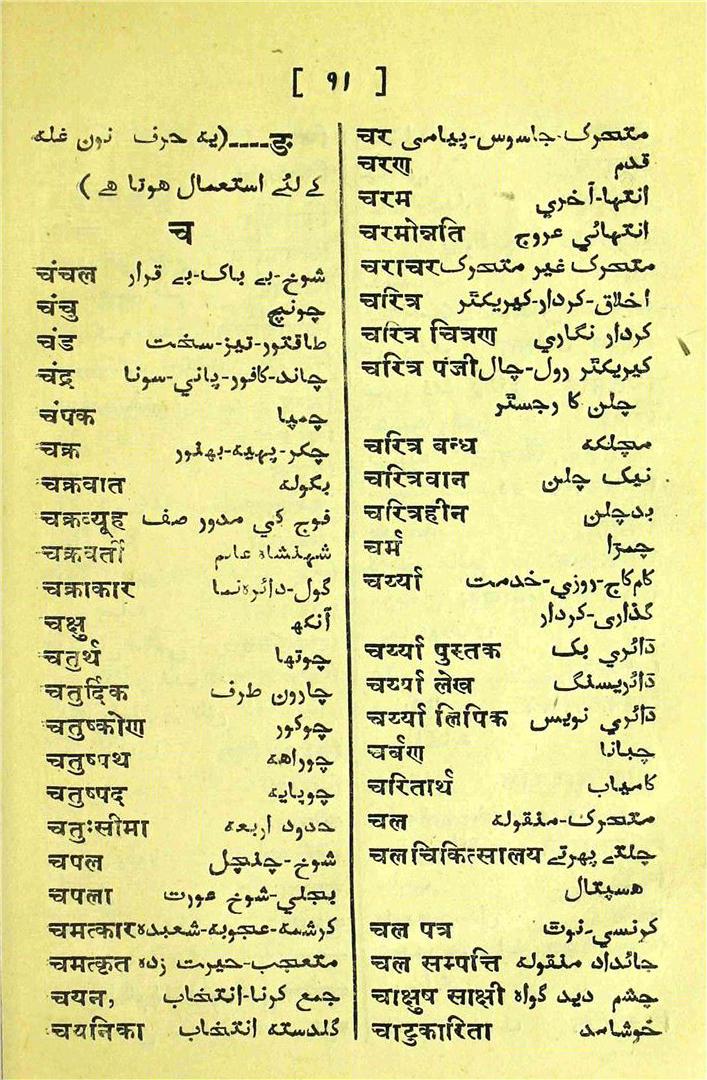 [ ९१ ]
ङ----(یہ حرف نون غلہ
کے لئے استعمال ہوتا ہے )
च
चंचल شوخ-بے باک-بے قرار
चंचु چونچ
चंड طاقتور-تیز-سخت
चंद्र چاند-کافور-پانی-سونا
चंपक چمپا
चक्र چکر-پہیہ-بھنور
चक्रवात بگولہ
चक्रव्यूह فوج کی مدور صف
चक्रवर्ती شہنشاہ عالم
चक्राकार گول-دائرہ نما
चक्षु آنکھ
चतुर्थ چوتھا
चतुर्दिक چارون طرف
चतुष्कोण چوکور
चतुष्पथ چوراہہ
चतुष्पद چوپایہ
चतुःसीमा حدود اربعہ
चपल شوخ-چنچل
चपला بجلی-شوخ عورت
चमत्कार کرشمہ-عجوبہ-شعبدہ
चमत्कृत متعجب-حیرت زدہ
चयन, جمع کرنا-انتخاب
चयनिका گلدستہ انتخاب
चर متحرک-جاسوس-پیامی
चरण قدم
चरम انتہا-آخری
चरमोन्नति انتہائی عروج
चराचर متحرک غیر متحرک
चरित्र اخلاق-کردار-کیریکٹر
चरित्र चित्रण کردار نگاری
चरित्र पंजी کیریکٹر رول-چال
چلن کا رجسٹر
चरित्र बन्ध مچلکہ
चरित्रवान نیک چلن
चरित्रहीन بدچلن
चर्म چمڑا
चर्य्या کام کاج-روزی-خدمت
گذاری-کردار
चर्य्या पुस्तक ڈائری بک
चर्य्या लेख ڈائریسنگ
चर्य्या लिपिक ڈائری نویس
चर्बण چبانا
चरितार्थ کامیاب
चल متحرک-منقولہ
चल चिकित्सालय چلتے پھرتے
ہسپتال
चल पत्र کرنسی-نوٹ
चल सम्पत्ति جائداد منقولہ
चाक्षुष साक्षी چشم دید گواہ
चाटुकारिता خوشامد